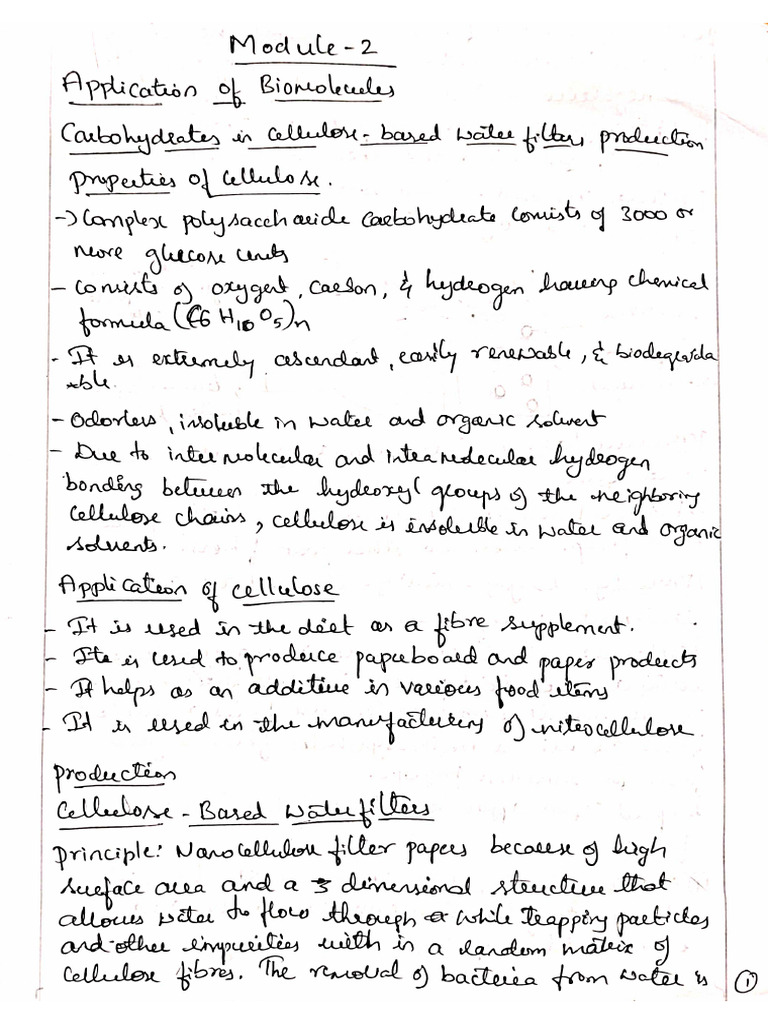 Module-2
Application of Biomolecules
Carbohydrates in cellulose-based water filters production
Properties of cellulose.
-> Complex polysaccharide carbohydrate consists of 3000 or
more glucose units
- consists of oxygen, carbon, & hydrogen having chemical
formula (C6 H10 O5)n
- It is extremely ascendant, easily renewable, & biodegrada
ble.
- Odorless, insoluble in water and organic solvent
- Due to intermolecular and intramolecular hydrogen
bonding between the hydroxyl groups of the neighboring
cellulose chains, cellulose is insoluble in water and organic
solvents.
Application of cellulose
- It is used in the diet as a fibre supplement.
- Its is used to produce paperboard and paper products
- It helps as an additive in various food items
- It is used in the manufacturing of nitrocellulose
production
Cellulose-Based water filters
Principle: Nanocellulose filter papers because of high
surface area and a 3 dimensional structure that
allows water to flow through while trapping particles
and other impurities with in a random matrix of
cellulose fibres. The removal of bacteria from water is
1